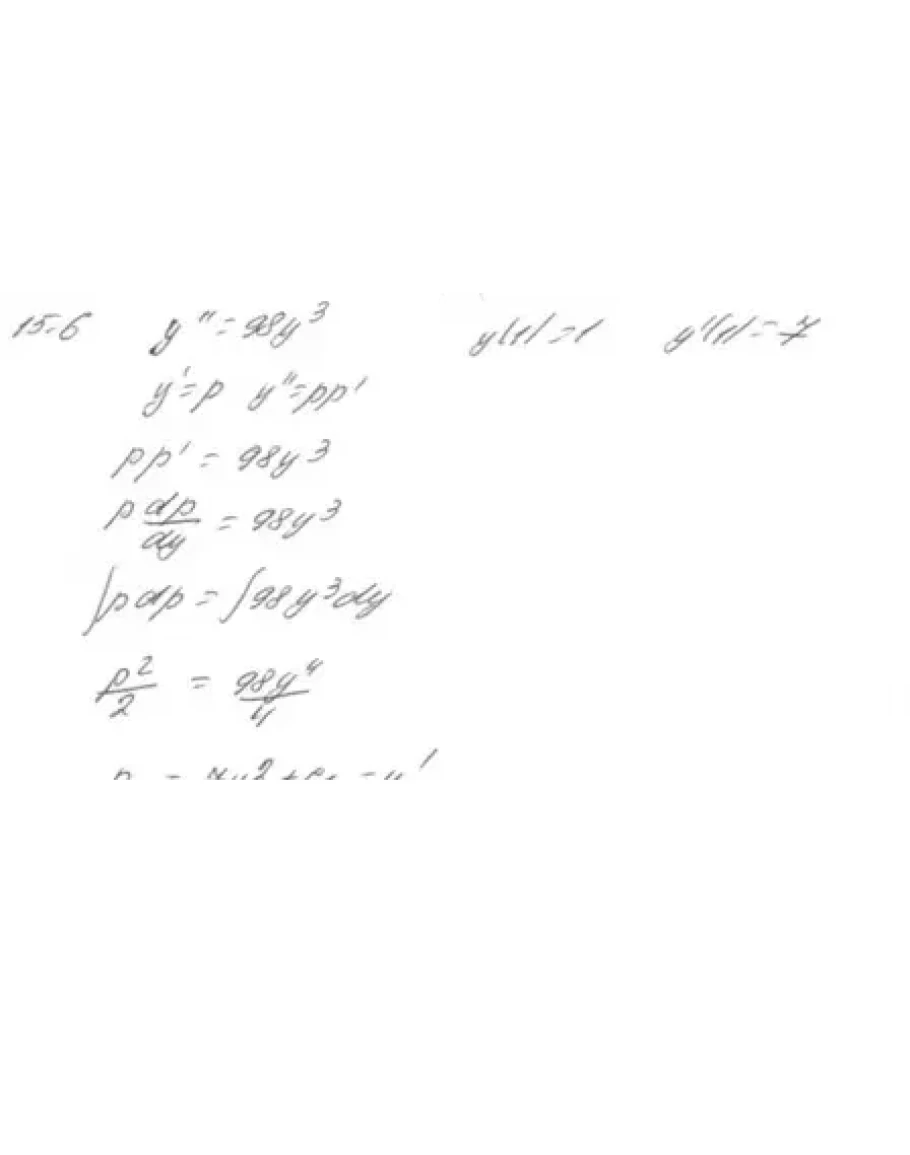 15.6 y'' = 98y³ y(1) = 1 y'(1) = 7
y' = p y'' = pp'
pp' = 98y³
p dp/dy = 98y³
∫pdp = ∫98y³dy
p²/2 = 98y⁴/4